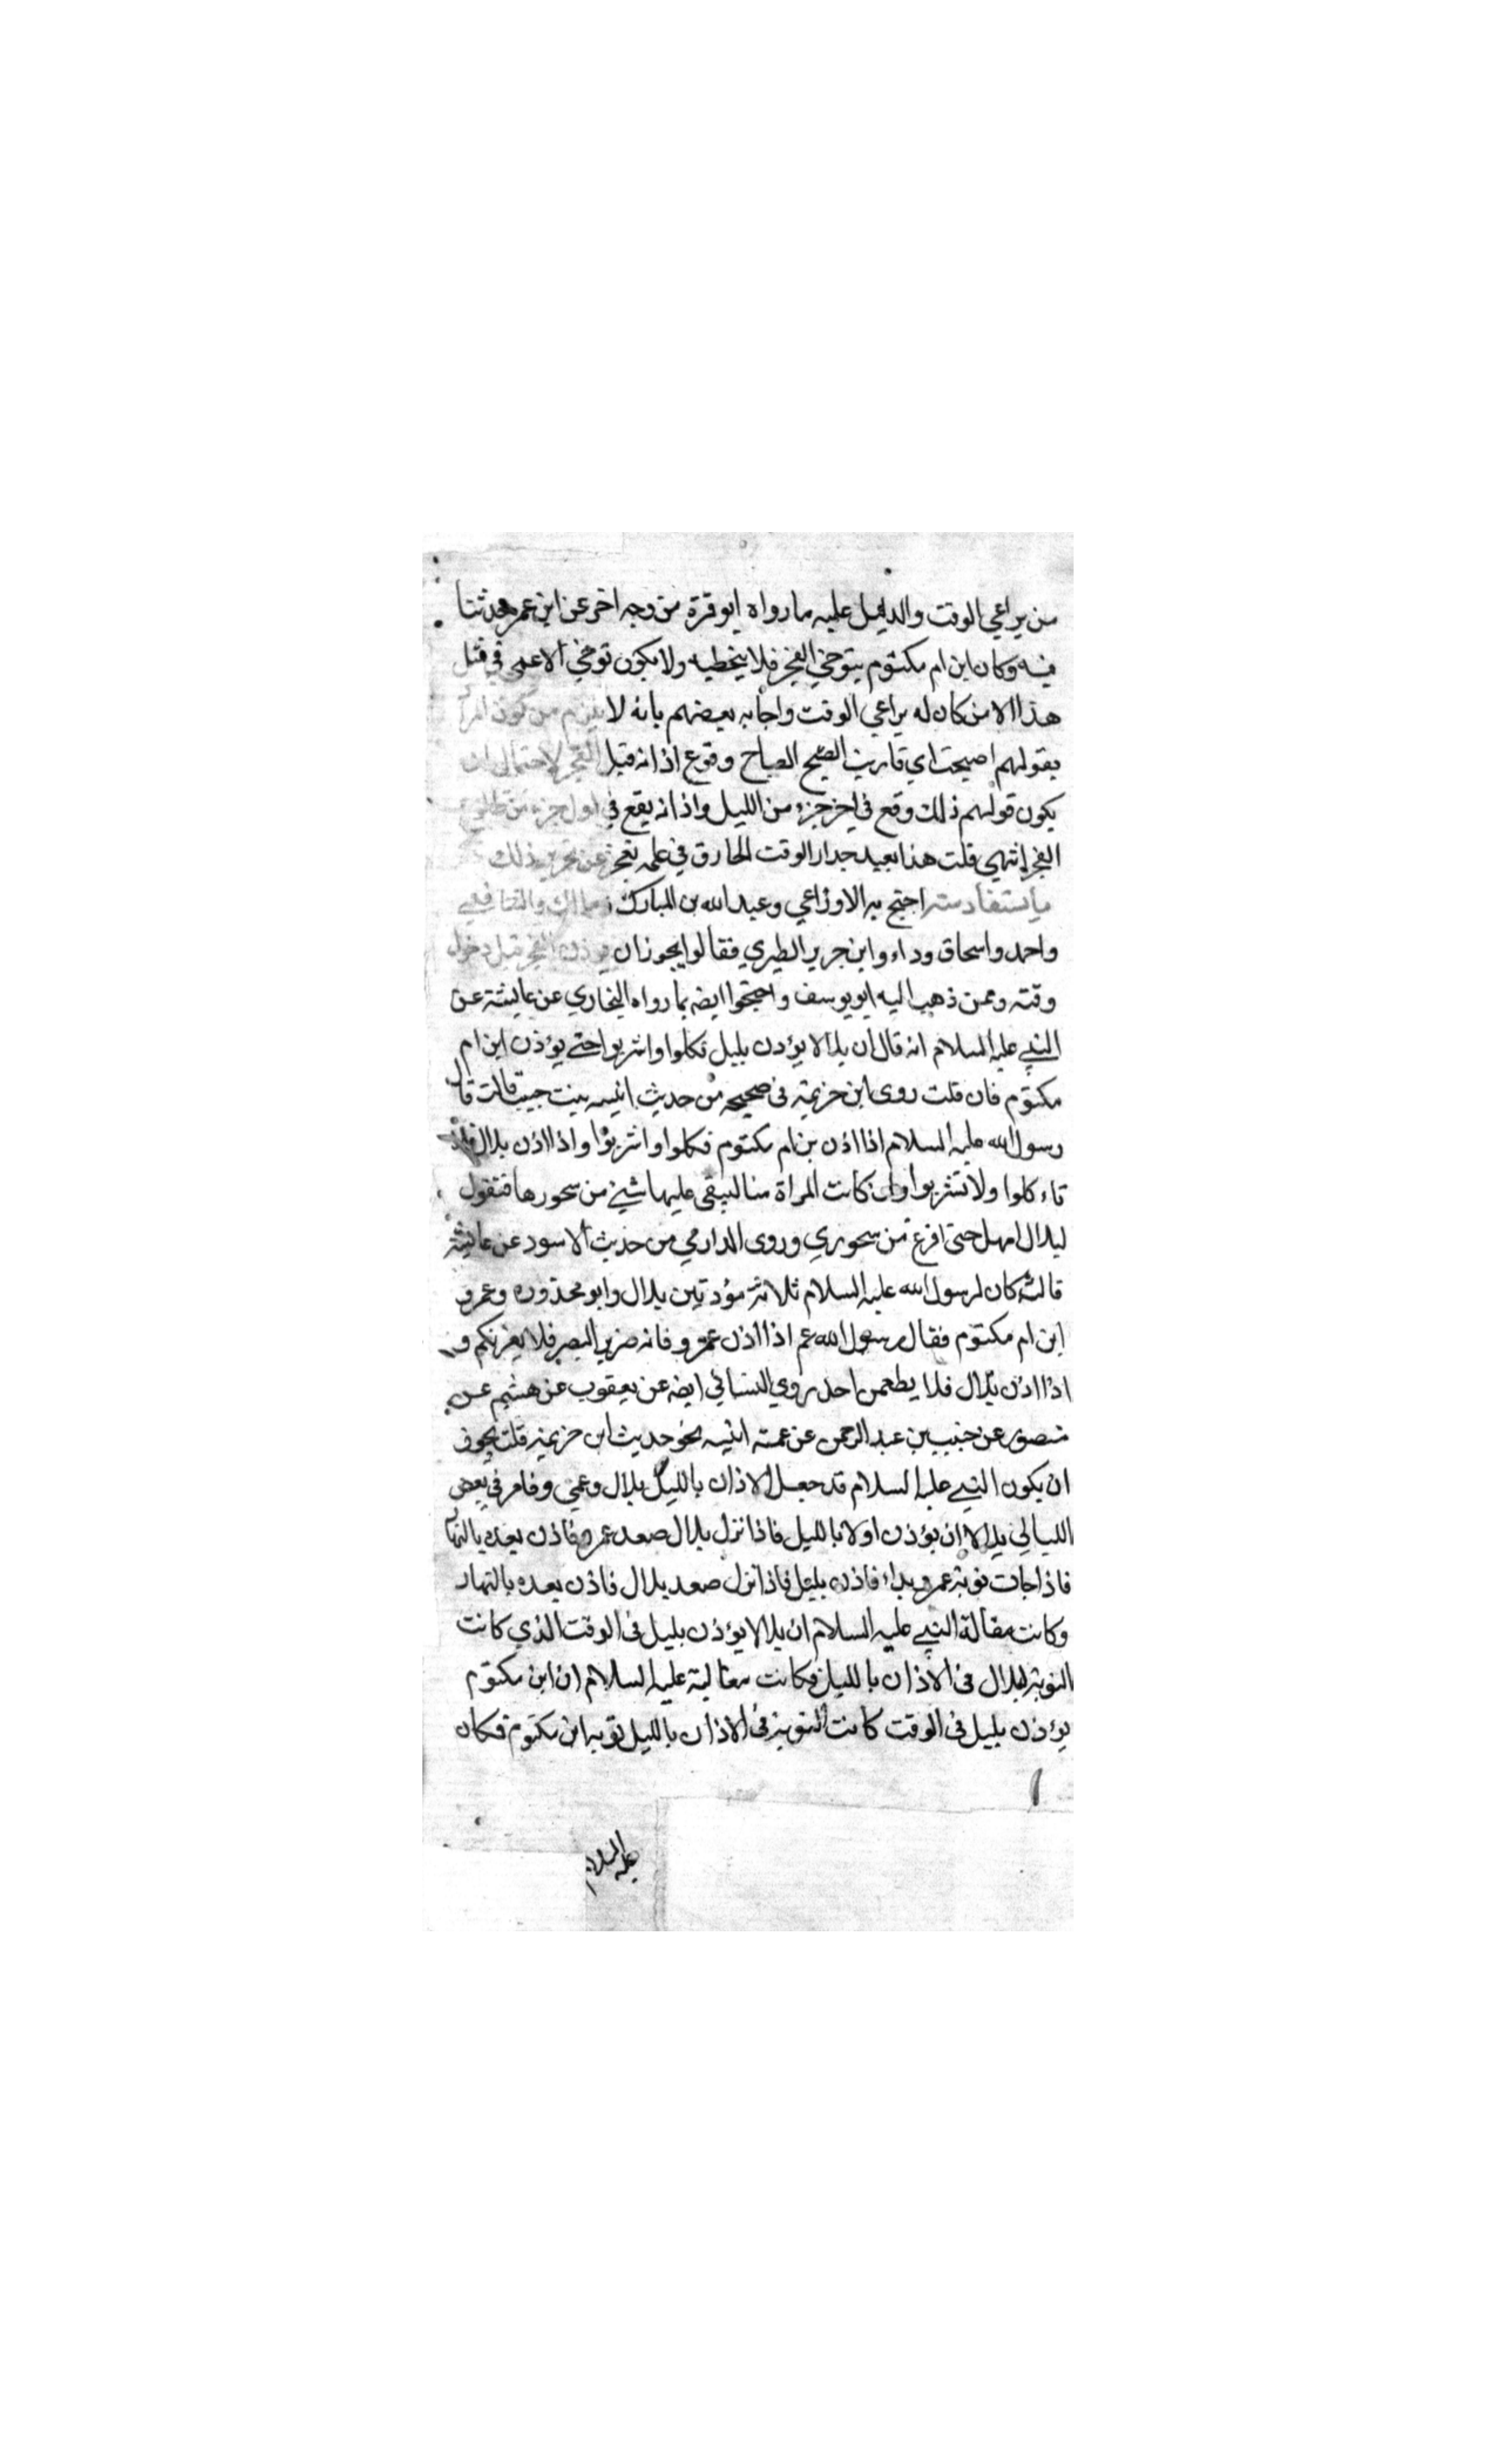 من يراعي الوقت والدليل عليه ما رواه ابو قرة من وجه اخر عن ابن عمر حدثنا
فيه وكان ابن ام مكتوم يتوخي الفجر فلا يخطيه ولا يكون توخي الاعمى في مثل
هذا الا من كان له يراعي الوقت واجاب بعضهم بانه لا يلزم من كون المراد
بقولهم اصبحت اي قاربت الصبح الصباح وقوع اذانه قبل الفجر لاحتمال ان
يكون قولهم ذلك وقع في اخر جزء من الليل واذانه يقع في اول جزء من طلوع
الفجر انتهى قلت هذا بعيد جدا والوقت الحارق في علمه يعجز عن تحرير ذلك
ما يستفاد منه احتج به الاوزاعي وعبد الله بن المبارك ومالك والشافعي
واحمد واسحاق وداء وابن جرير الطبري فقالوا يجوز ان يوذن الفجر قبل دخول
وقته وممن ذهب اليه ابو يوسف واحتجوا ايضه بما رواه البخاري عن عايشة عن
النبي عليه السلام انه قال ان بلالا يؤذن بليل فكلوا واشربوا حتى يؤذن ابن ام
مكتوم فان قلت روى ابن خزيمة في صحيحه من حديث انيسه بنت حبيب قالت قال
رسول الله عليه السلام اذا اذن بن ام مكتوم فكلوا واشربوا واذا اذن بلال فلا
تاءكلوا ولا تشربوا وان كانت المراة منا ليبقى عليها شيء من سحورها فتقول
لبلال امهل حتى افرغ من سحوري وروى الدارمي من حديث الاسود عن عايشة
قالت كان لرسول الله عليه السلام ثلاثة مؤذنين بلال وابو محذوره وعمرو
ابن ام مكتوم فقال رسول الله عم اذا اذن عمرو فانه ضرير البصر فلا يغرنكم و
اذا اذن بلال فلا يطعمن احد روي النسائي ايضه عن يعقوب عن هشيم عن
منصور عن خبيب بن عبد الرحمن عن عمته انيسه نحو حديث ابن خزيمة قلت يجوز
ان يكون النبي عليه السلام قد جعل الاذان بالليل بلال وعمي وفامر في بعض
الليالي بلالا ان يؤذن اولا بالليل فاذا نزل بلال صعد عمرو فاذن بعده بالنهار
فاذا جات نوبة عمرو بداء فاذن بليل فاذا نزل صعد بلال فاذن بعده بالنهار
وكانت مقالة النبي عليه السلام ان بلالا يؤذن بليل في الوقت الذي كانت
النوبة لبلال في الاذان بالليل فكانت مقالته عليه السلام ان ابن مكتوم
يؤذن بليل في الوقت كانت النوبة في الاذان بالليل نوبة ابن مكتوم فكان
عليه السلام